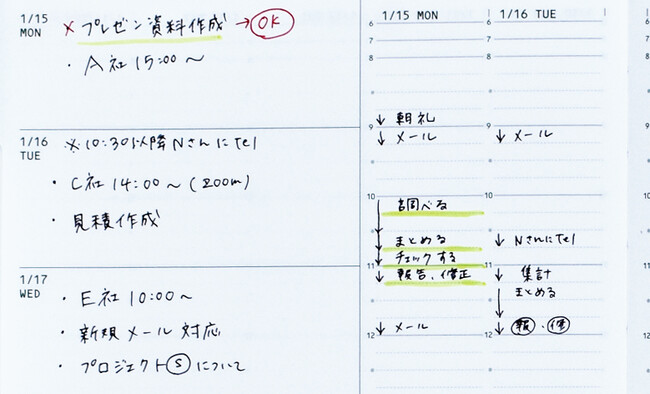 1/15
MON
× プレゼン資料作成 → OK
・A社 15:00〜
1/16
TUE
※10:30以降Nさんにtel
・C社 14:00〜(200m)
・見積作成
1/17
WED
・E社 10:00〜
・新規メール対応
・プロジェクトⓈについて
1/15 MON
6
7
8
↓ 朝礼
9
↓ メール
10
調べる
↓ まとめる
↓ チェックする
11
↓ 報告、修正
↓ メール
12
1/16 TUE
6
7
8
9
↓ メール
10
↓ Nさんにtel
11
↓ 集計
まとめる
↓ 報・修
12
6
7
8
9
10
11
12